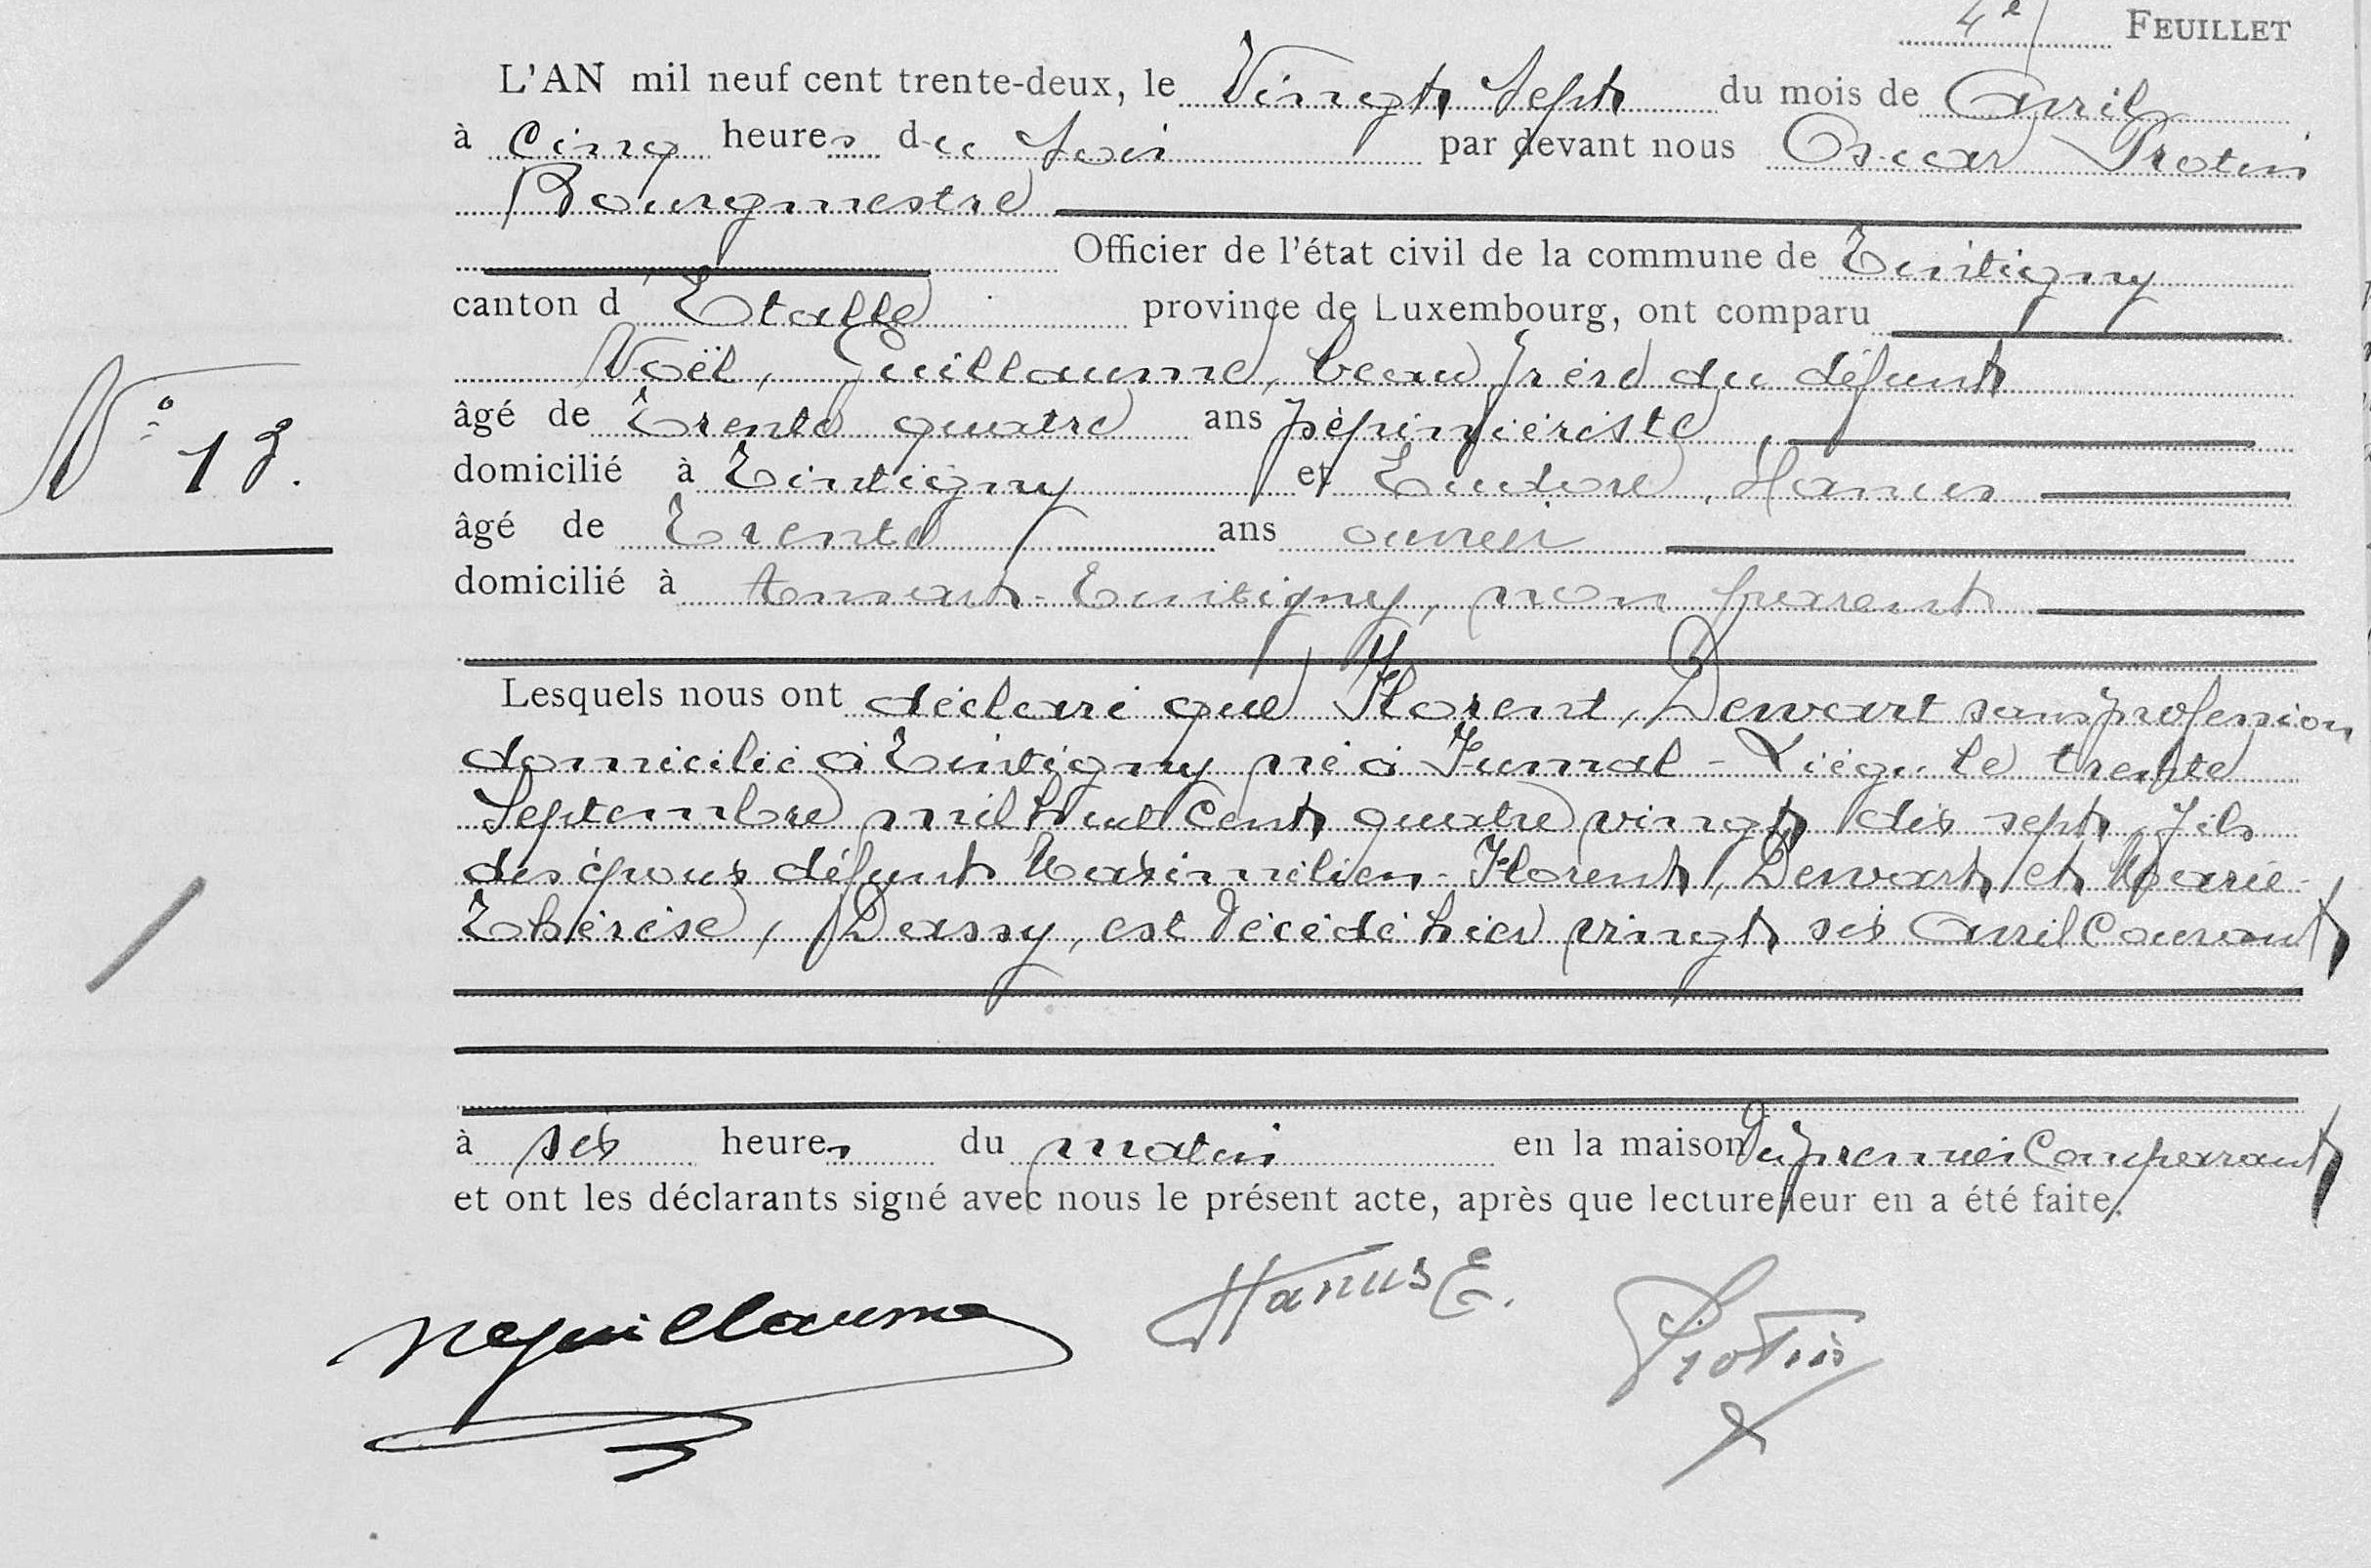 4e FEUILLET
L'AN mil neuf cent trente-deux, le Vingt Sept du mois de Avril
à Cinq heures du Soir par devant nous Oscar Protin
Bourgmestre
Officier de l'état civil de la commune de Tintigny
canton d'Etalle province de Luxembourg, ont comparu
Noël, Guillaume, beau frère du défunt
âgé de Trente quatre ans pépiniériste,
N° 13.
domicilié à Tintigny et Eudore, Hanus
âgé de Trente ans ouvrier
domicilié à Ansart-Tintigny, non parent
Lesquels nous ont déclaré que Florent, Dewart sans profession
domicilié à Tintigny né à Fumal - Liège le trente
Septembre mil huit Cent quatre vingt dix sept, fils
des époux défunt Maximilien-Florent, Dewart et Marie-
Thérèse, Dassy, est décédé hier vingt six avril Courant
à six heures du matin en la maison du premier Comparant
et ont les déclarants signé avec nous le présent acte, après que lecture leur en a été faite.
Hanus E.
Protin